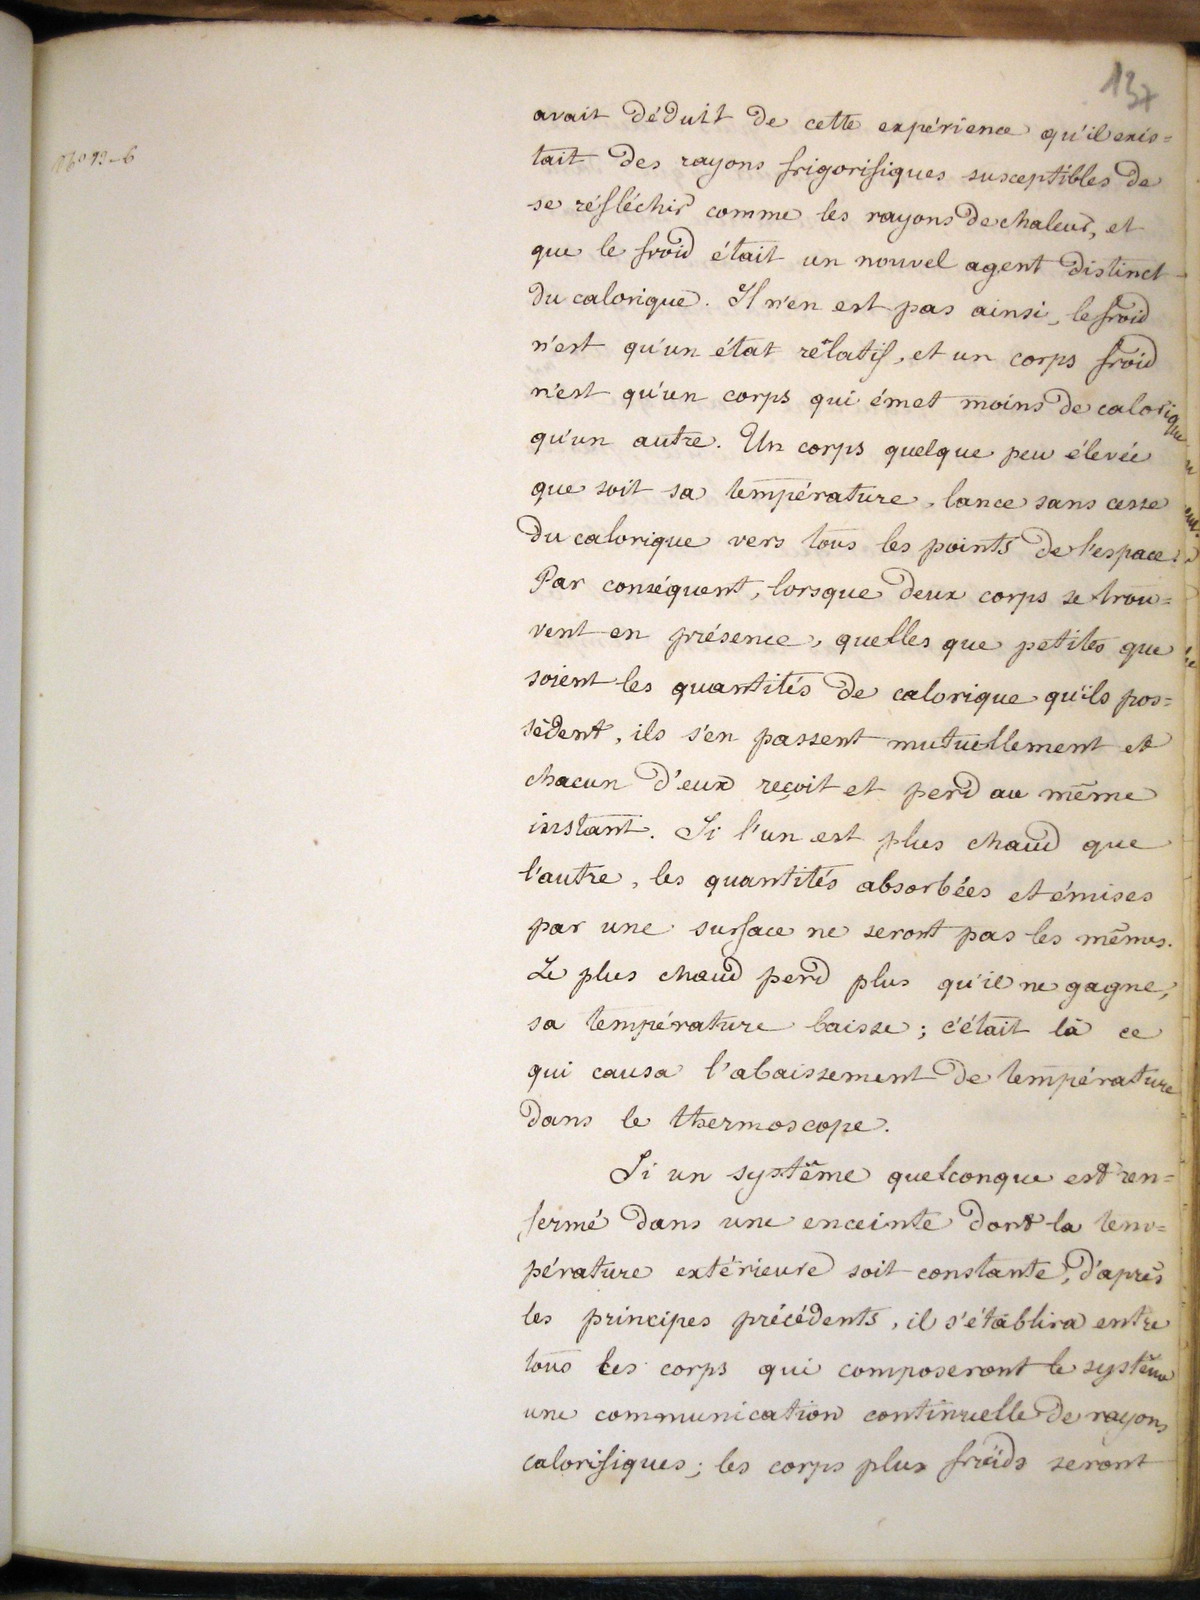 137
avait déduit de cette expérience qu'il exis=
tait des rayons frigorifiques susceptibles de
se réfléchir comme les rayons de chaleur, et
que le froid était un nouvel agent distinct
du calorique. Il n'en est pas ainsi, le froid
n'est qu'un état rélatif, et un corps froid
n'est qu'un corps qui émet moins de calorique
qu'un autre. Un corps quelque peu élevée
que soit sa température, lance sans cesse
du calorique vers tous les points de l'espace.
Par conséquent, lorsque deux corps se trou=
vent en présence, quelles que petites que
soient les quantités de calorique qu'ils pos=
sèdent, ils s'en passent mutuellement et
chacun d'eux reçoit et perd au même
instant. Si l'un est plus chaud que
l'autre, les quantités absorbées et émises
par une surface ne seront pas les mêmes.
Le plus chaud perd plus qu'il ne gagne,
sa température baisse; c'était là ce
qui causa l'abaissement de température
dans le thermoscope.
Si un système quelconque est ren=
fermé dans une enceinte dont la tem=
pérature extérieure soit constante, d'après
les principes précédents, il s'établira entre
tous les corps qui composeront le système
une communication continuelle de rayons
calorifiques; les corps plus froids seront